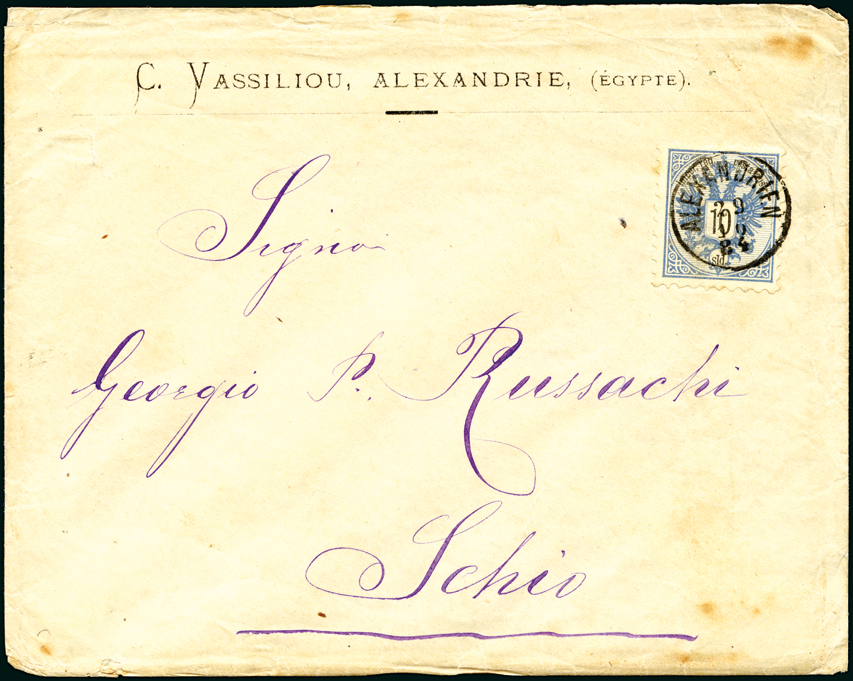 C. VASSILIOU, ALEXANDRIE, (ÉGYPTE).
ALEXANDRIEN
10
9
84
Signor
Georgio P. Russachi
Schio